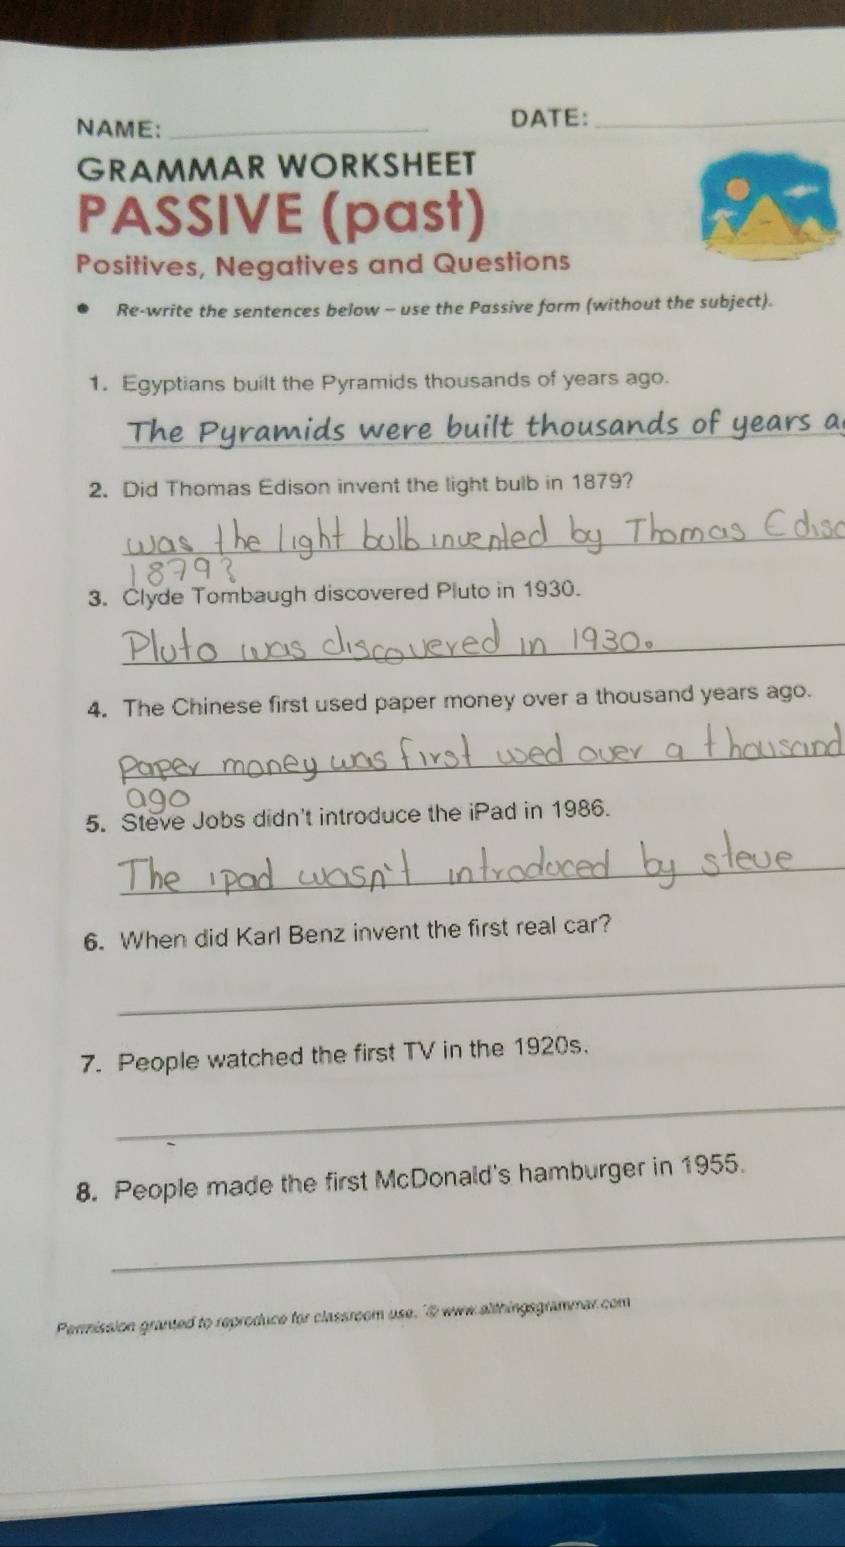 NAME: DATE:
GRAMMAR WORKSHEET
PASSIVE (past)
Positives, Negatives and Questions
• Re-write the sentences below – use the Passive form (without the subject).
1. Egyptians built the Pyramids thousands of years ago.
The Pyramids were built thousands of years
2. Did Thomas Edison invent the light bulb in 1879?
was the light bulb invented by Thomas
1879?
3. Clyde Tombaugh discovered Pluto in 1930.
Pluto was discovered in 1930.
4. The Chinese first used paper money over a thousand years ago.
paper money was first used over a thousand
ago
5. Steve Jobs didn't introduce the iPad in 1986.
The ipad wasn't introduced by steve
6. When did Karl Benz invent the first real car?
7. People watched the first TV in the 1920s.
8. People made the first McDonald's hamburger in 1955.
Permission granted to reproduce for classroom use. © www.allthingsgrammar.com